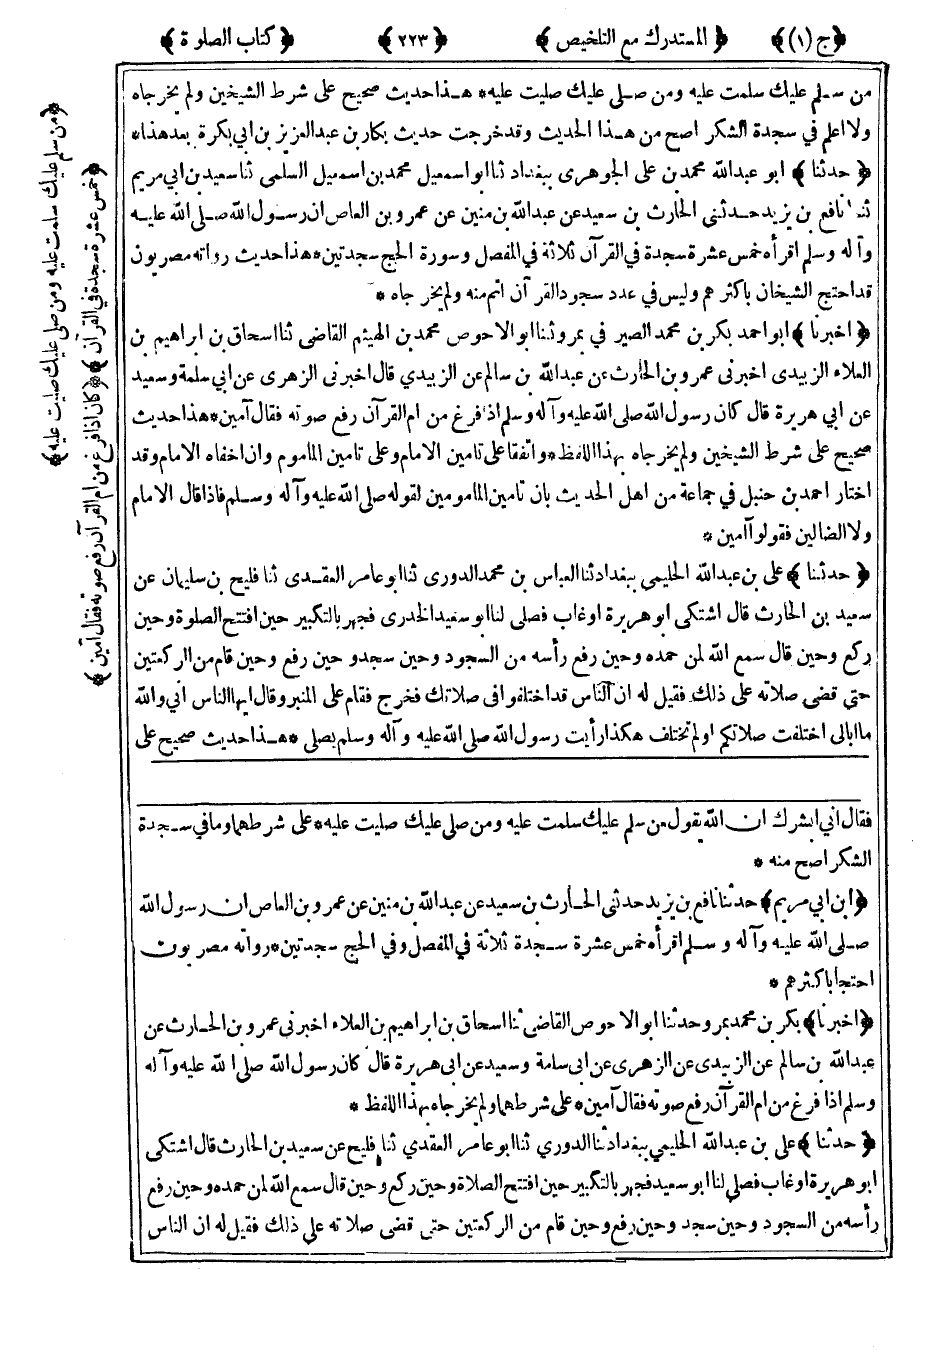 ﴿ ج (١) ﴾ ﴿ المستدرك مع التلخيص ﴾ ﴿ ٢٢٣ ﴾ ﴿ كتاب الصلوة ﴾
من سلم عليك سلمت عليه ومن صلى عليك صليت عليه * هذا حديث صحيح على شرط الشيخين ولم يخرجاه
ولا اعلم في سجدة الشكر اصح من هذا الحديث وقد خرجت حديث بكار بن عبد العزيز بن ابي بكرة بعد هذا *
﴿ حدثنا ﴾ ابو عبد الله محمد بن على الجوهرى ببغداد ثنا ابو اسمعيل محمد بن اسمعيل السلمى ثنا سعيد بن ابى مريم
ثنا نافع بن يزيد حدثنى الحارث بن سعيد عن عبد الله بن منين عن عمرو بن العاص ان رسول الله صلى الله عليه
وآله وسلم اقرأه خمس عشرة سجدة في القرآن ثلاثة في المفصل وسورة الحج سجدتين * هذا حديث رواته مصريون
قد احتج الشيخان باكثرهم وليس في عدد سجود القرآن اتم منه ولم يخرجاه *
﴿ اخبرنا ﴾ ابو احمد بكر بن محمد الصيرفي بمرو ثنا ابو الاحوص محمد بن الهيثم القاضى ثنا اسحاق بن ابراهيم بن
العلاء الزبيدى اخبرنى عمرو بن الحارث عن عبد الله بن سالم عن الزبيدي قال اخبرنى الزهرى عن ابى سلمة وسعيد
عن ابي هريرة قال كان رسول الله صلى الله عليه وآله وسلم اذا فرغ من ام القرآن رفع صوته فقال آمين * هذا حديث
صحيح على شرط الشيخين ولم يخرجاه بهذا اللفظ * واتفقا على تامين الامام وعلى تامين الماموم وان اخفاه الامام وقد
اختار احمد بن حنبل في جماعة من اهل الحديث بان تامين المامومين لقوله صلى الله عليه وآله وسلم فاذا قال الامام
ولا الضالين فقولوا آمين *
﴿ حدثنا ﴾ على بن عبد الله الحليمي ببغداد ثنا العباس بن محمد الدورى ثنا ابو عامر العقدى ثنا فليح بن سليمان عن
سعيد بن الحارث قال اشتكى ابو هريرة او غاب فصلى لنا ابو سعيد الخدرى فجهر بالتكبير حين افتتح الصلوة وحين
ركع وحين قال سمع الله لمن حمده وحين رفع رأسه من السجود وحين سجد و حين رفع وحين قام من الركعتين
حتى قضى صلاته على ذلك فقيل له ان الناس قد اختلفوا في صلاتك فخرج فقام على المنبر وقال ايها الناس انى والله
ما ابالى اختلفت صلاتكم او لم تختلف هكذا رأيت رسول الله صلى الله عليه وآله وسلم يصلى * هذا حديث صحيح على
فقال اني ابشرك ان الله يقول من سلم عليك سلمت عليه ومن صلى عليك صليت عليه * على شرطهما وما في سجدة
الشكر اصح منه *
﴿ ابن ابي مريم ﴾ حدثنا نافع بن يزيد حدثنى الحارث بن سعيد عن عبد الله بن منين عن عمرو بن العاص ان رسول الله
صلى الله عليه وآله وسلم اقرأه خمس عشرة سجدة ثلاثة في المفصل وفي الحج سجدتين * رواته مصريون
احتجا باكثرهم *
﴿ اخبرنا ﴾ بكر بن محمد بمرو حدثنا ابو الاحوص القاضى ثنا اسحاق بن ابراهيم بن العلاء اخبرنى عمرو بن الحارث عن
عبد الله بن سالم عن الزبيدى عن الزهرى عن ابى سلمة وسعيد عن ابى هريرة قال كان رسول الله صلى الله عليه وآله
وسلم اذا فرغ من ام القرآن رفع صوته فقال آمين * على شرطهما ولم يخرجاه بهذا اللفظ *
﴿ حدثنا ﴾ على بن عبد الله الحليمي ببغداد ثنا الدوري ثنا ابو عامر العقدي ثنا فليح عن سعيد بن الحارث قال اشتكى
ابو هريرة او غاب فصلى لنا ابو سعيد فجهر بالتكبير حين افتتح الصلاة وحين ركع وحين قال سمع الله لمن حمده وحين رفع
رأسه من السجود وحين سجد وحين رفع وحين قام من الركعتين حتى قضى صلاته على ذلك فقيل له ان الناس
﴿ من سلم عليك سلمت عليه ومن صلى عليك صليت عليه ﴾
﴿ خمس عشرة سجدة في القرآن ﴾ ﴿ كان اذا فرغ من ام القرآن رفع صوته فقال آمين ﴾